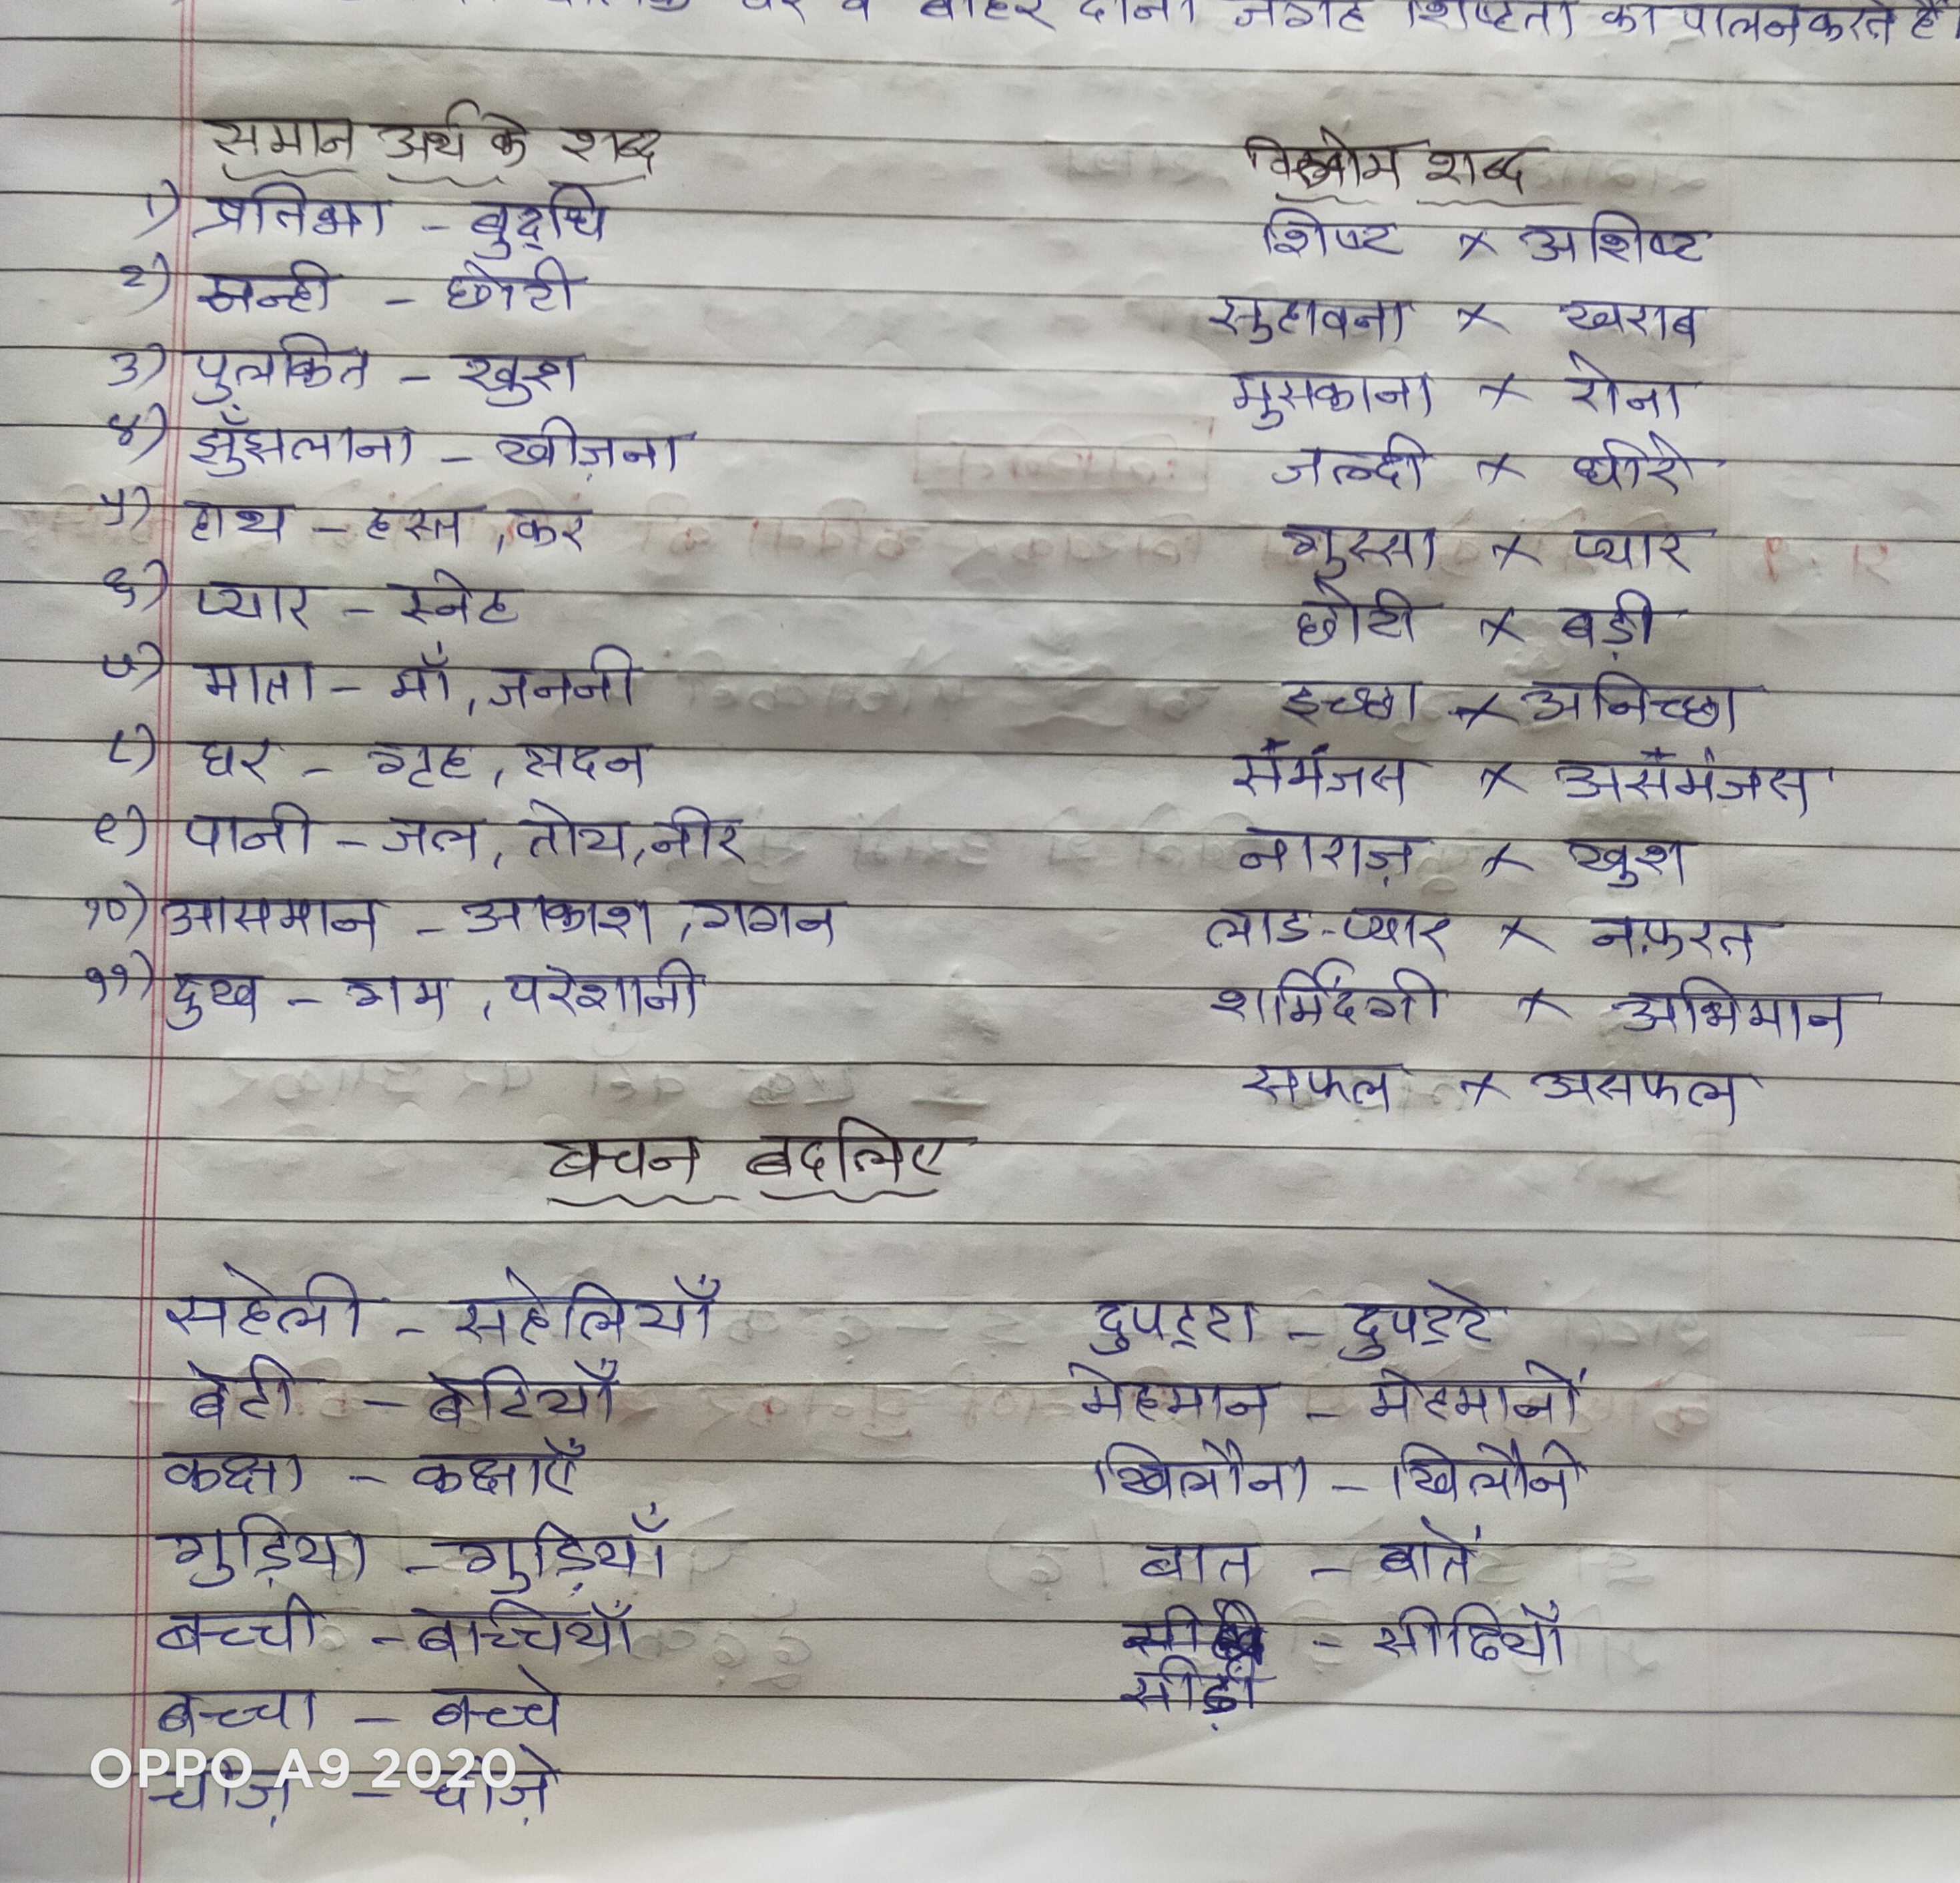 घर व बाहर दोनों जगह शिष्टता का पालन करते हैं।
समान अर्थ के शब्द
१) प्रतिभा - बुद्धि
२) नन्ही - छोटी
३) पुलकित - खुश
४) झुँझलाना - खीज़ना
५) हाथ - हस्त, कर
६) प्यार - स्नेह
७) माता - माँ, जननी
८) घर - गृह, सदन
९) पानी - जल, तोय, नीर
१०) आसमान - आकाश, गगन
११) दुख - गम, परेशानी
विलोम शब्द
शिष्ट × अशिष्ट
सुहावना × खराब
मुसकाना × रोना
जल्दी × धीरे
गुस्सा × प्यार
छोटी × बड़ी
इच्छा × अनिच्छा
सँमंजस × असँमंजस
नाराज़ × खुश
लाड-प्यार × नफ़रत
शर्मिंदगी × अभिमान
सफल × असफल
वचन बदलिए
सहेली - सहेलियाँ
बेटी - बेटियाँ
कक्षा - कक्षाएँ
गुड़िया - गुड़ियाँ
बच्ची - बच्चियाँ
बच्चा - बच्चे
चीज़ - चीज़े
दुपट्टा - दुपट्टे
मेहमान - मेहमानों
खिलौना - खिलौने
बात - बातें
- सीढियाँ
सीढ़ी
OPPO A9 2020